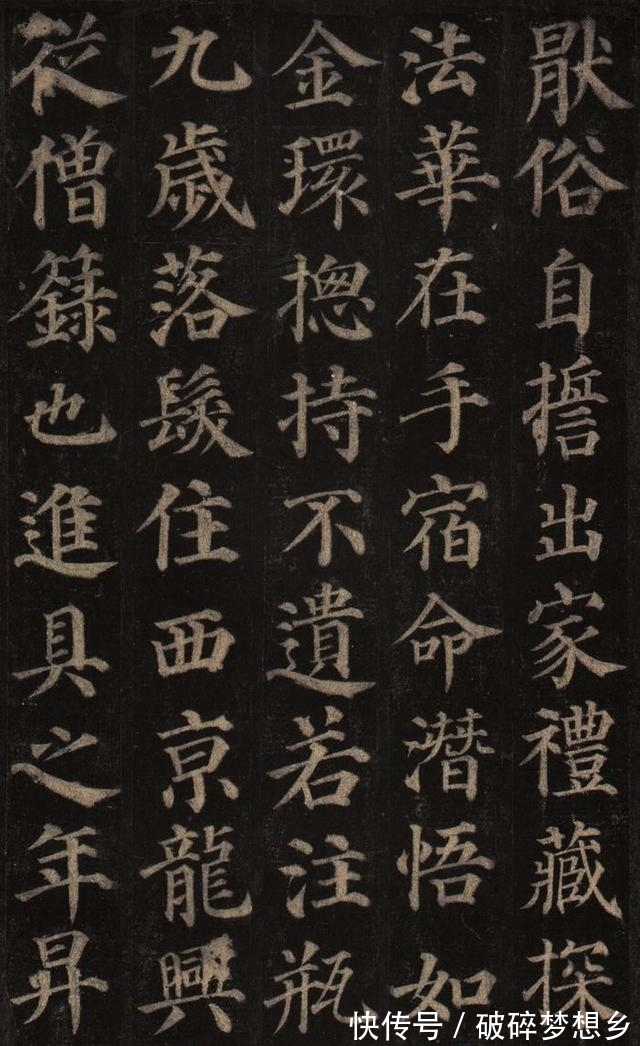 猒俗自誓出家禮藏探
法華在手宿命潛悟如
金環揔持不遺若注瓶
九歲落髮住西京龍興
從僧籙也進具之年昇
快传号 / 破碎梦想乡